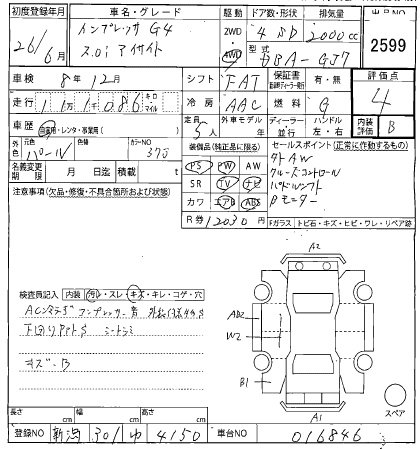 初度登録年月 車名・グレード 駆動 ドア数・形状 排気量 出品NO
26年6月 インプレッサ G4 2WD 4 SD 2000cc 2599
2.0i アイサイト 4WD 型式 DBA-GJ7
車検 8年12月 シフト FAT 保証書 有・無 評価点
走行 11万1千086 キロ マイル 冷房 AAC 燃料 G 4
車歴 自家用・レンタ・事業用( ) 定員 5人 外車モデル年 ディーラー 並行 ハンドル 左・右 内装評価 B
元色 パール 色替 カラーNO 37J 装備品(純正品に限る) セールスポイント(正常に作動するもの)
名義変更期限 月 日迄 積載 t PS PW AW
注意事項(欠品・修復・不具合箇所および状態) SR TV ナビ クルーズコントロール
カワ エアB ABS パドルシフト
R券 12030円 Bモニター
Fガラス トビ石・キズ・ヒビ・ワレ・リペア跡
検査員記入 内装 汚レ・スレ・キズ・キレ・コゲ・穴
キズ・B
A2
AB2
W2
B1
A1
スペア
長さ cm 幅 cm 高さ cm
登録NO 新潟 301 ゆ 4150 車台NO 016846